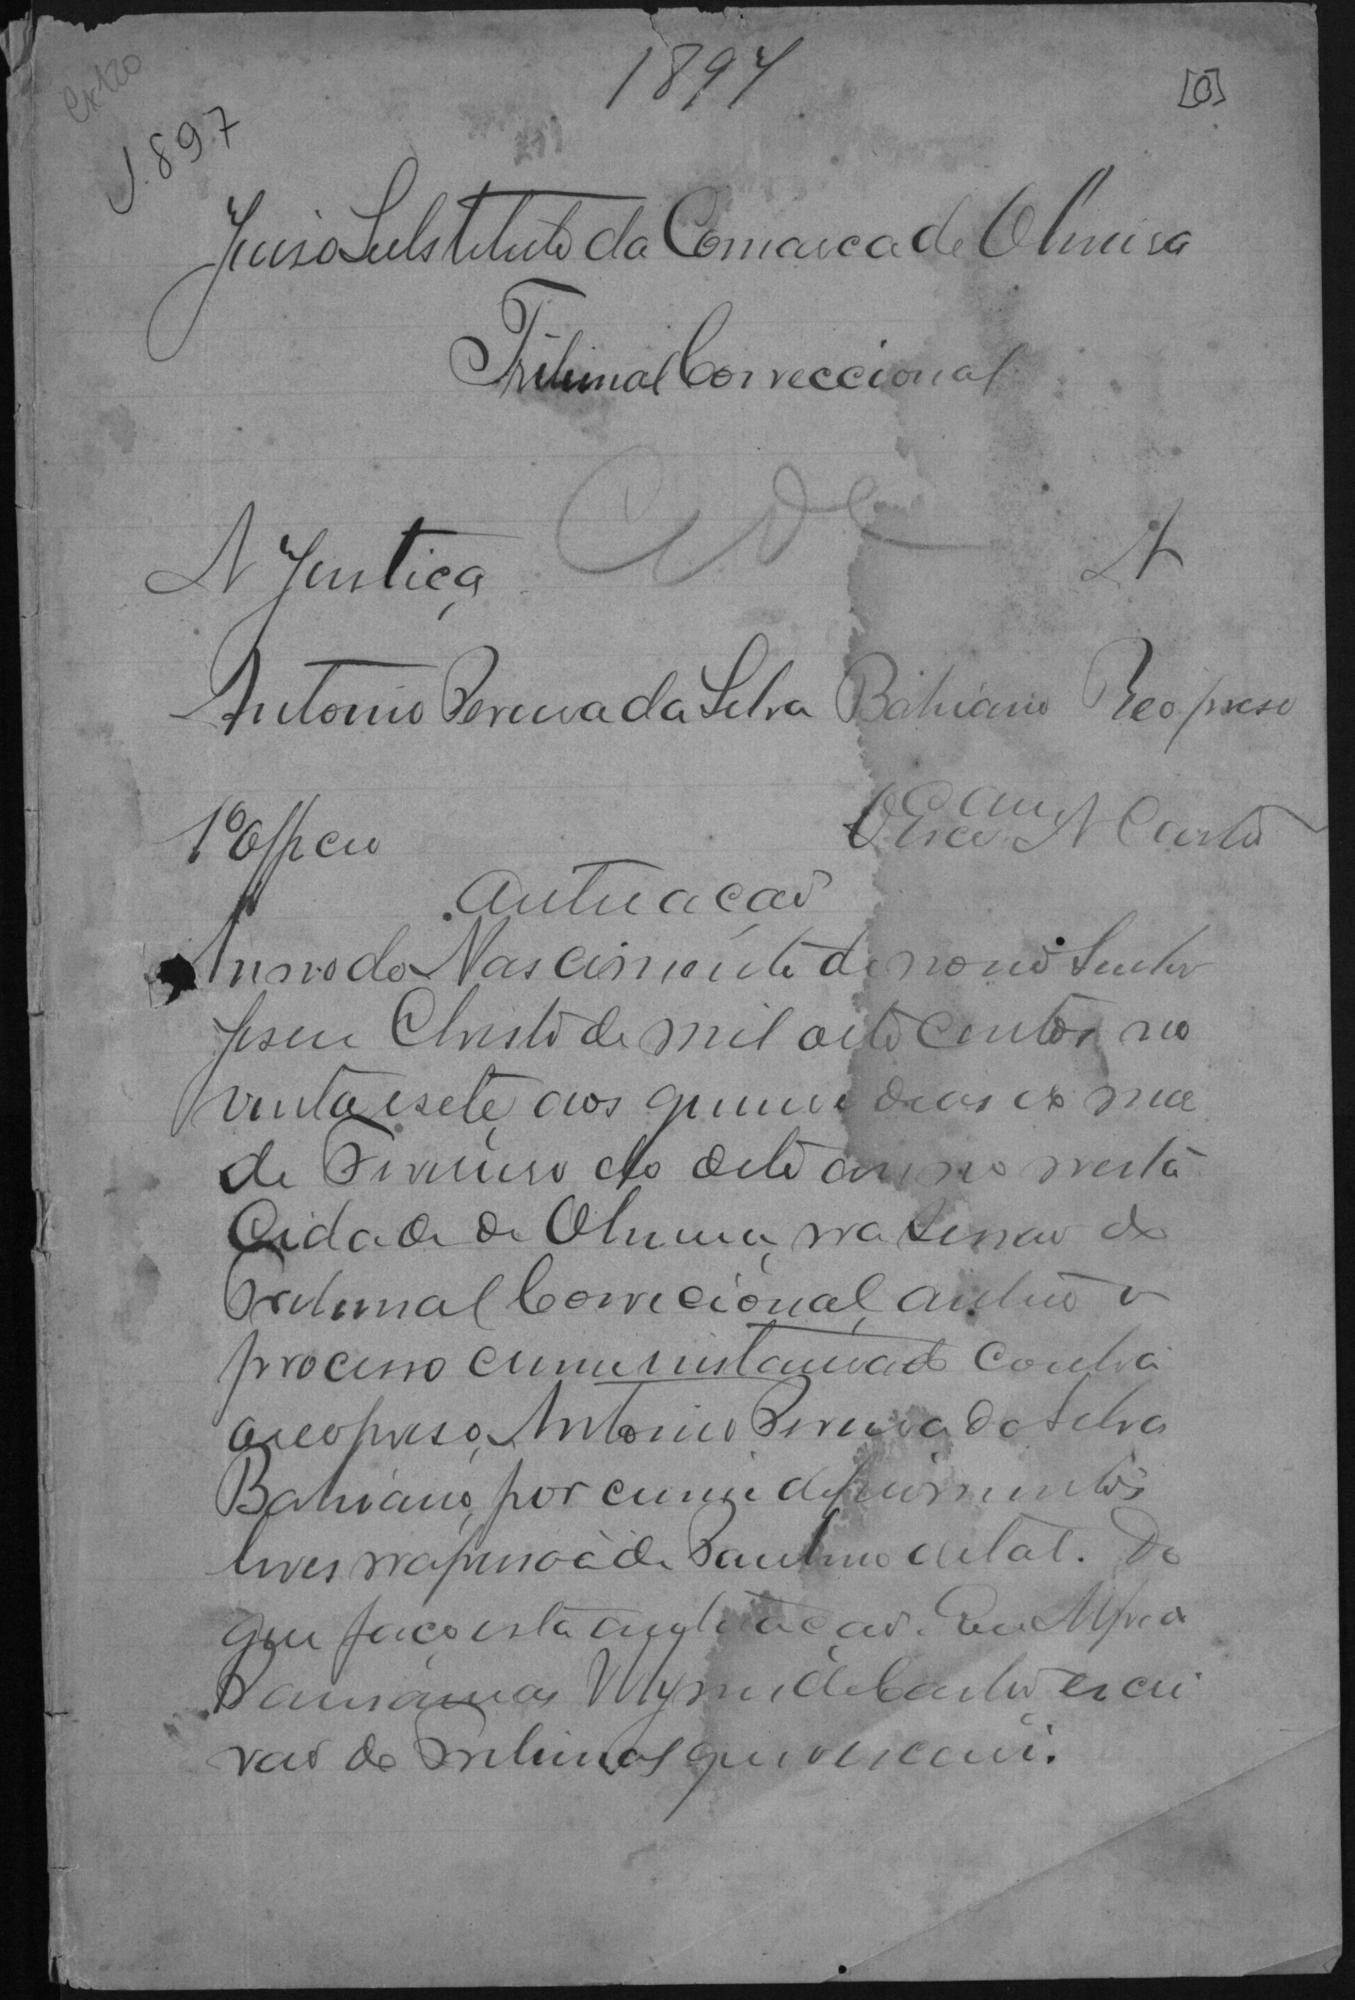 1897
[0]
1.897
Juiso Substituto da Comarca de Oliveira
Tribunal Correccional
A Justiça A
Antonio Pereira da Silva Bahiano Reo preso
1º Officio
O Escrivão Castro
Autuação
Anno do Nascimento de nosso Senhor
Jesus Christo de mil oito centos no
venta e sete, aos quinze dias do mez
de Fevereiro do dito anno nesta
Cidade de Oliveira, na sessão do
Tribunal Correcional, autuo o
processo crime instaurado contra
o reo preso, Antonio Pereira da Silva
Bahiano, por crime de ferimentos
leves na pessoa de Paulino de tal. Do
que faço esta autuação. Eu Alfredo
de Castro escri
vão do Tribunal que o escrevi.